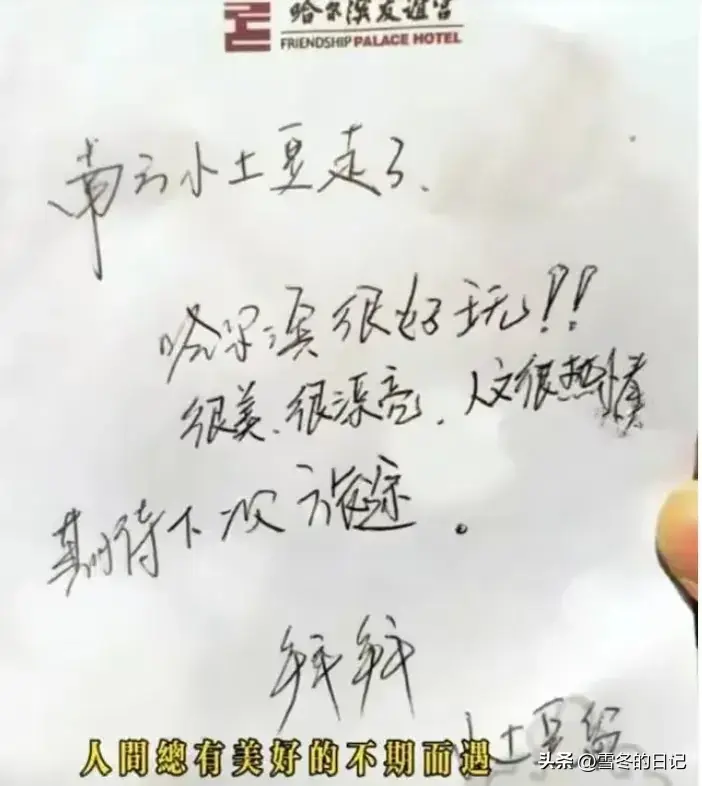 哈尔滨友谊宫
FRIENDSHIP PALACE HOTEL
南方小土豆走了、
哈尔滨很好玩!!
很美、很漂亮、人文很热情
期待下次旅途。
拜拜
小土豆留
人間總有美好的不期而遇
头条 @雪冬的日记